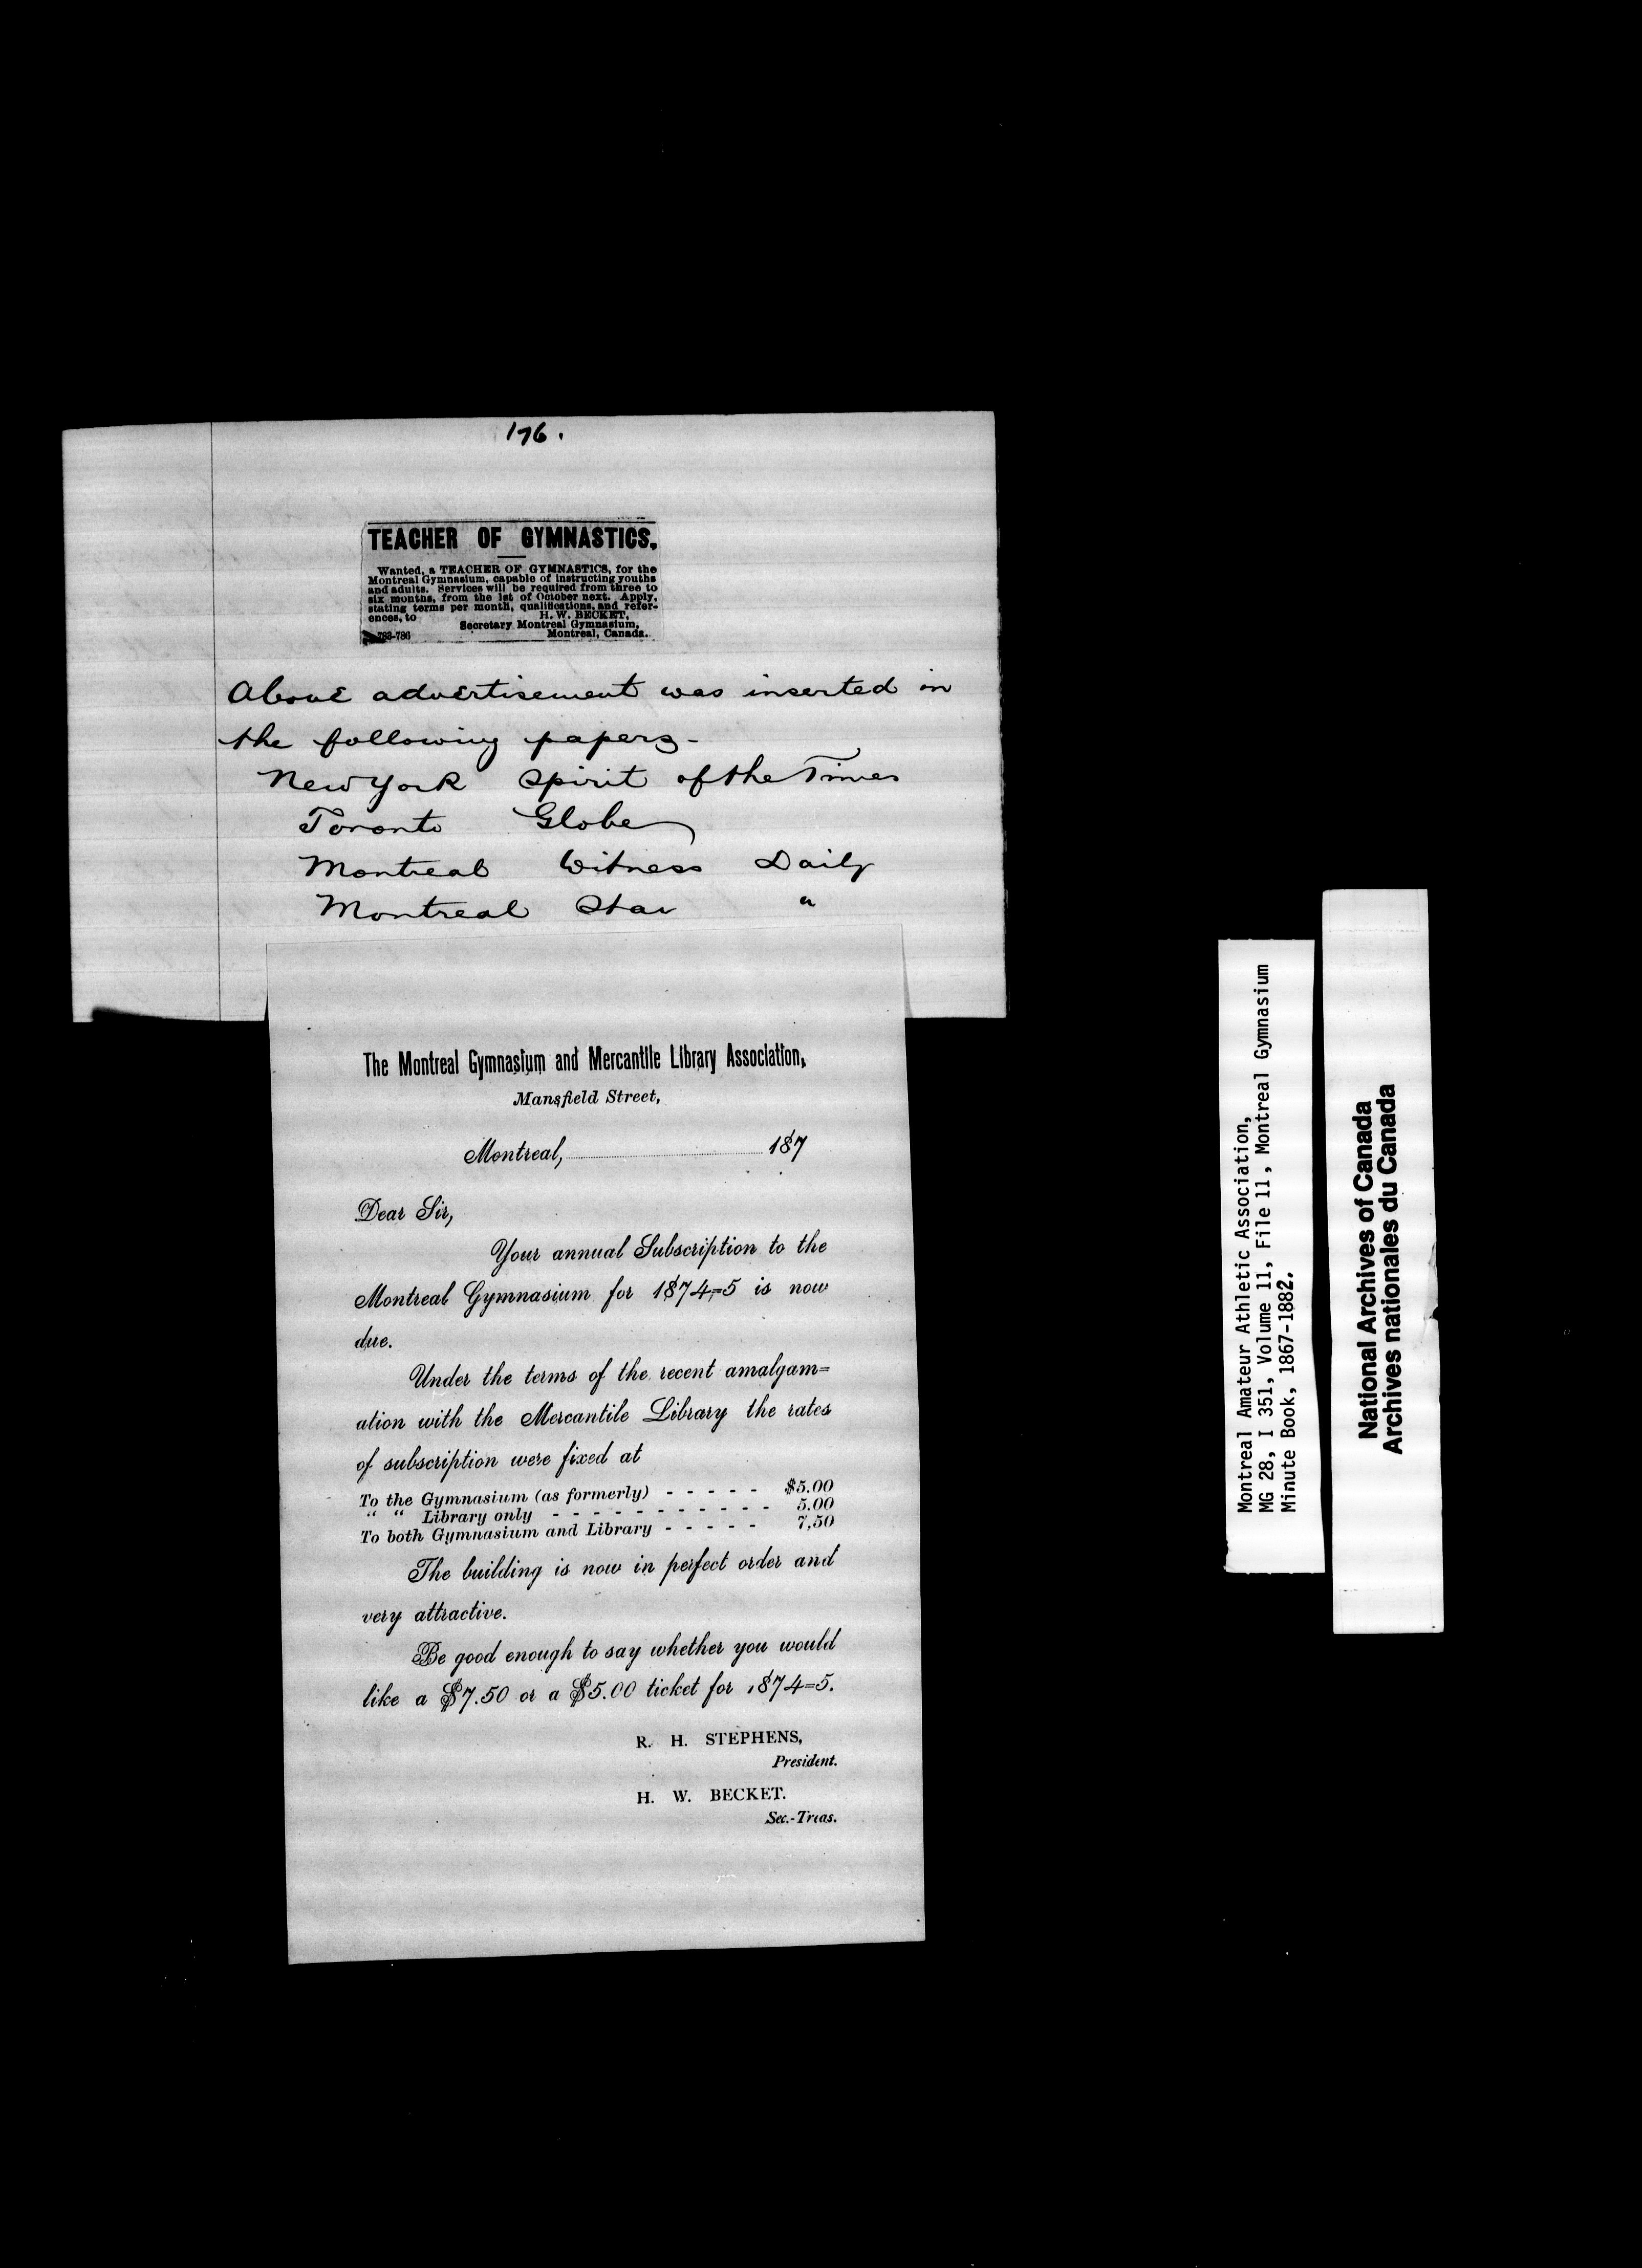 176.
TEACHER OF GYMNASTICS.
Wanted, a TEACHER OF GYMNASTICS, for the
Montreal Gymnasium, capable of instructing youths
and adults. Services will be required from three to
six months, from the 1st of October next. Apply,
stating terms per month, qualifications, and refer-
ences, to H. W. BECKET,
Secretary Montreal Gymnasium,
783-786 Montreal, Canada.
Above advertisement was inserted in
the following papers-
New York Spirit of the Times
Toronto Globe
Montreal Witness Daily
Montreal Star "
The Montreal Gymnasium and Mercantile Library Association,
Mansfield Street,
Montreal, 187
Dear Sir,
Your annual Subscription to the
Montreal Gymnasium for 1874=5 is now
due.
Under the terms of the recent amalgam=
ation with the Mercantile Library the rates
of subscription were fixed at
To the Gymnasium (as formerly) - - - - - $5.00
" " Library only - - - - - - - - - - - 5.00
To both Gymnasium and Library - - - - - 7,50
The building is now in perfect order and
very attractive.
Be good enough to say whether you would
like a $7.50 or a $5.00 ticket for 1874=5.
R. H. STEPHENS,
President.
H. W. BECKET.
Sec.-Treas.
Montreal Amateur Athletic Association,
MG 28, I 351, Volume 11, File 11, Montreal Gymnasium
Minute Book, 1867-1882.
National Archives of Canada
Archives nationales du Canada